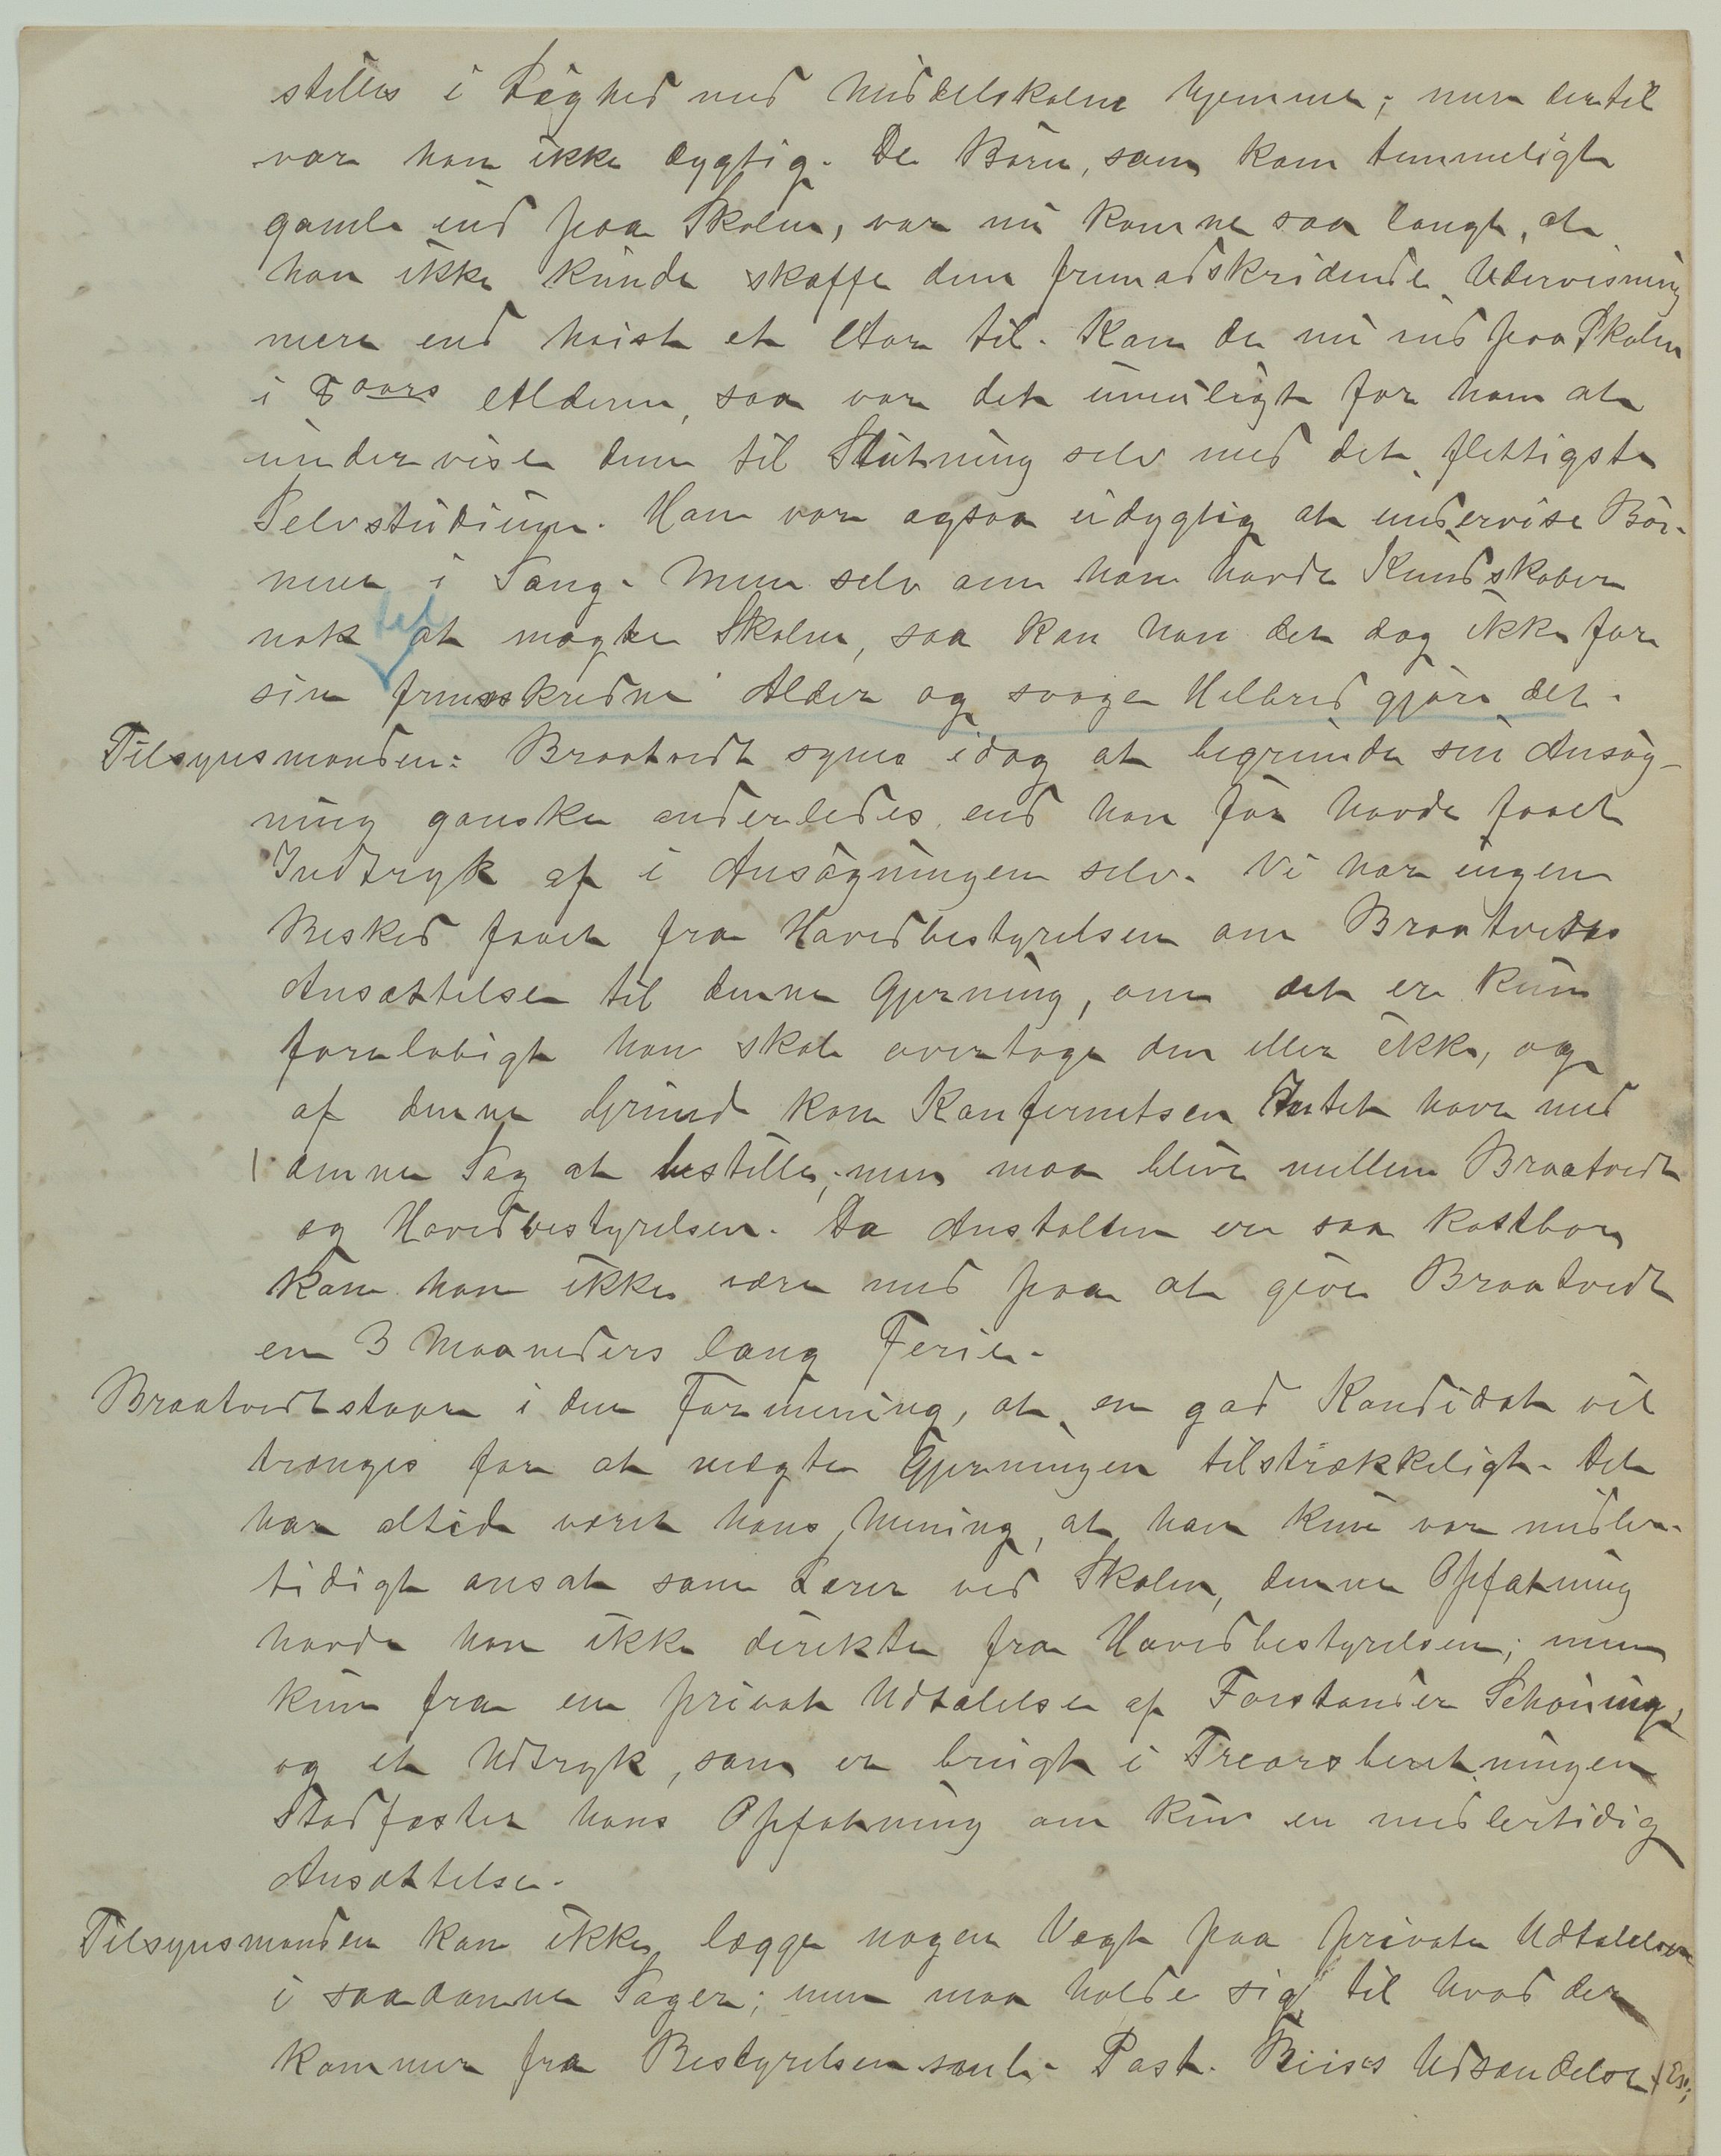 stilles i Lighed med Middelskolen hjemme; men dertil
var han ikke dygtig. De Børn, som kom temmeligt
gamle ind paa Skolen, var nu komne saa langt, at
han ikke kunde skaffe dem fremadskridende Udervisning
mere end høist et Aar til. Kom de nu ind paa Skolen
i 8 aars Alderen, saa var det umuligt for ham at
undervise dem til Slutning selv med det flittigste
Selvstudium. Han var ogsaa udygtig at undervise Bør-
nene i Sang. Men selv om han havde Kundskaber
nok til at magte Skolen, saa kan han det dog ikke for
sin fremskredne Alder og svage Helbred gjøre det.
Tilsynsmanden: Braatvedt synes idag at begrunde sin Ansøg-
ning ganske anderledes end han før havde faaet
Indtryk af i Ansøgningen selv. Vi har ingen
Besked faaet fra Hovedbestyrelsen om Braatvedts
Ansættelse til denne Gjerning, om det er kun
foreløbigt han skal overtage den eller ikke, og
af denne Grund kan Konferentsen Intet have med
denne Sag at bestille; men maa blive mellem Braatvedt
og Hovedbestyrelsen. Da Anstalten er saa kostbar
kan han ikke være med paa at give Braatvedt
en 3 Maaneders lang Ferie.
Braatvedt staar i den Formening, at en god Kandidat vil
trænges for at magte Gjerningen tilstrækkeligt. Det
har altid været hans Mening, at han kun var midler-
tidigt ansat som Lærer ved Skolen, denne Opfatning
havde han ikke direkte fra Hovedbestyrelsen; men
kun fra en privat Udtalelse af Forstander Schøning,
og et Udtryk, som er brugt i Treaarsberetningen
Stadfæster hans Opfatning om kun en midlertidig
Ansættelse.
Tilsynsmanden kan ikke lægge nogen Vægt paa private Udtalelser
i saadanne Sager; men maa holde sig til hvad der
kommer fra Bestyrelsen saml. Past. Udsendelse